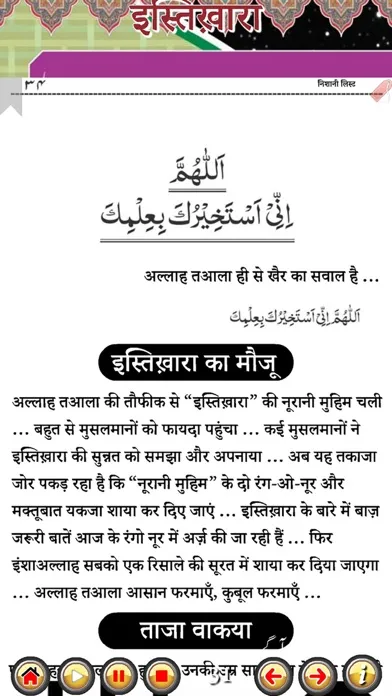 इस्तिख़ारा
۳۴
निशानी लिस्ट
اَللّٰهُمَّ
اِنِّىْ اَسْتَخِيْرُكَ بِعِلْمِكَ
अल्लाह तआला ही से खैर का सवाल है ...
اَللّٰهُمَّ اِنِّىْ اَسْتَخِيْرُكَ بِعِلْمِكَ
इस्तिख़ारा का मौजू
अल्लाह तआला की तौफीक से “इस्तिख़ारा” की नूरानी मुहिम चली
... बहुत से मुसलमानों को फायदा पहुंचा ... कई मुसलमानों ने
इस्तिख़ारा की सुन्नत को समझा और अपनाया ... अब यह तकाजा
जोर पकड़ रहा है कि “नूरानी मुहिम” के दो रंग-ओ-नूर और
मक्तूबात यकजा शाया कर दिए जाएं ... इस्तिख़ारा के बारे में बाज़
जरूरी बातें आज के रंगो नूर में अर्ज़ की जा रही हैं ... फिर
इंशाअल्लाह सबको एक रिसाले की सूरत में शाया कर दिया जाएगा
... अल्लाह तआला आसान फरमाएँ, कुबूल फरमाएँ ...
ताजा वाकया
31
उनकी उम्र